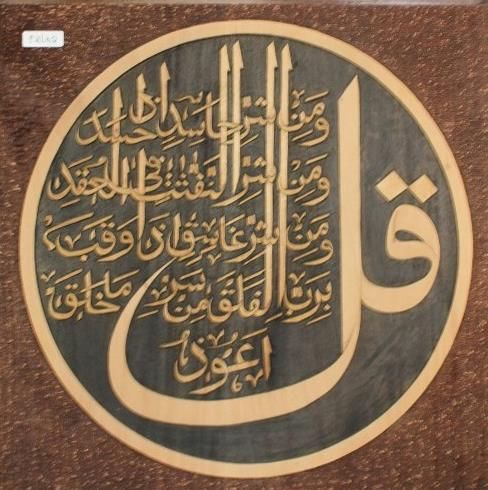 قل
اعوذ
برب الفلق من شر ما خلق
ومن شر غاسق اذا وقب
ومن شر النفثت في العقد
ومن شر حاسد اذا حسد